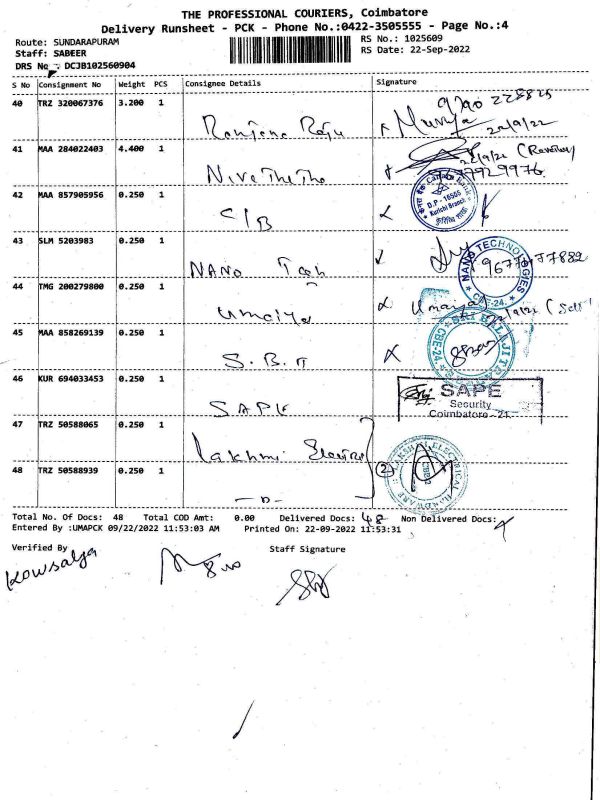 THE PROFESSIONAL COURIERS, Coimbatore
Delivery Runsheet - PCK - Phone No.:0422-3505555 - Page No.:4
Route: SUNDARAPURAM
RS No.: 1025609
Staff: SABEER
RS Date: 22-Sep-2022
DRS No : DCJB102560904
S No Consignment No Weight PCS Consignee Details Signature
40 TRZ 320067376 3.200 1
22/9/22
41 MAA 284022403 4.400 1
Nivethetha
42 MAA 857905956 0.250 1
CIB
D.P - 18555
Kurichi Branch
43 SLM 5203983 0.250 1
NANO Tech
NANO TECHNOLOGIES
CBE-24.
44 TMG 200279800 0.250 1
Umaiya
45 MAA 858269139 0.250 1
S.B.
CBE-24
46 KUR 694033453 0.250 1
SAPE
SAPE
Security
Coimbatore - 21
47 TRZ 50588065 0.250 1
Lakhmi
48 TRZ 50588939 0.250 1
2
Total No. Of Docs: 48 Total COD Amt: 0.00 Delivered Docs: 48 Non Delivered Docs:
Entered By :UMAPCK 09/22/2022 11:53:03 AM Printed On: 22-09-2022 11:53:31
Verified By
Staff Signature
Kowsalya